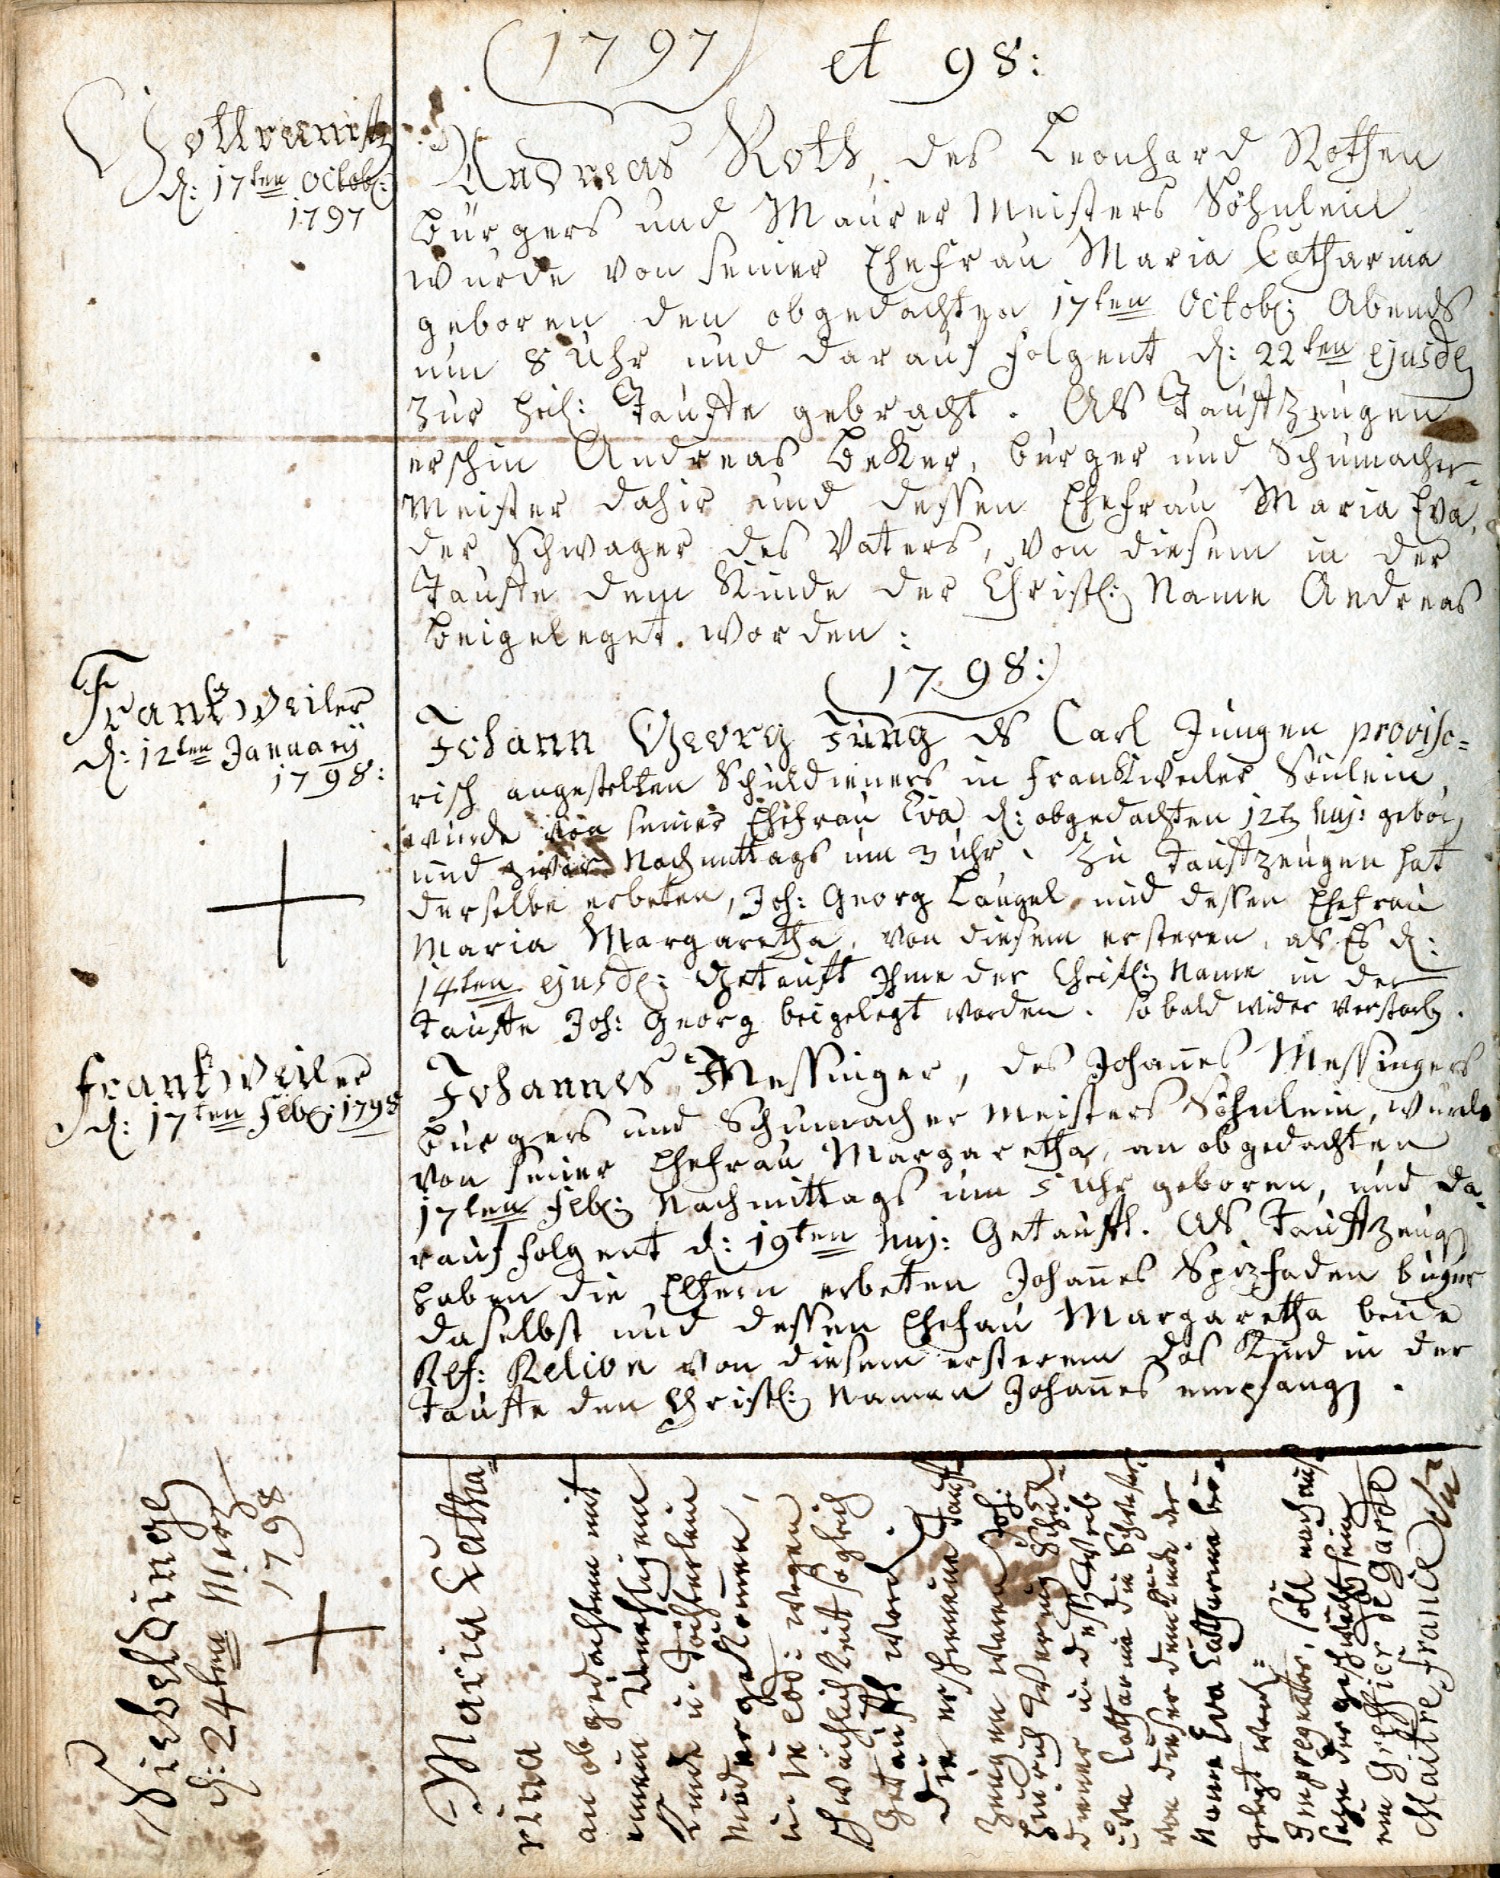 1797 et 98:
Gottramst.
d: 17ten Octob:
1797
Andreas Roth, des Leonhard Rothen
bürgers und Maurer Meisters Söhnlein
wurde von seiner Ehefrau Maria Catharina
geboren den obgedachten 17ten Octob: Abends
um 8 Uhr und darauf folgent d: 22ten ejusd:
zur heil: Tauffe gebracht. Als Taufzeugen
erschin Andreas Beker, burger und Schumacher-
Meister dahir und dessen Ehefrau Maria Eva,
der Schwager des Vaters, von diesem in der
Tauffe dem Kinde der Christl: Name Andreas
beigeleget worden:
1798:
Frankweiler
d: 12ten Januarÿ
1798:
Johann Georg Jung ds Carl Jungen proviso=
risch angestelten Schuldieners in Frankweiler Sönlein,
wurde von seiner Ehefrau Eva d: obgedachten 12t. huj: gebor.
und zwar Nachmittags um 3 Uhr. Zu Taufzeugen hat
derselbe erbeten, Joh: Georg Laugel und dessen Ehefrau
Maria Margaretha, von diesem ersteren, als Es d:
14ten ejusd: Getauft Ihme der Christl: Name in der
Tauffe Joh: Georg beigelegt worden. so bald wider verstorb.
Frankweiler
d: 17ten Feb: 1798
Johannes Messinger, des Johañes Messingers
burgers und Schumacher Meisters Söhnlein, wurde
von seiner Ehefrau Margaretha, an obgedachten
17ten Feb: Nachmittags um 5 Uhr geboren, und da-
rauf folgent d: 19ten huj: Getauft. Als Taufzeug.
haben die Eltern erbeten Johañes Spizfaden büger
daselbst und dessen Ehefau Margaretha beide
Ref: Relion von diesem ersterem das Kind in der
Tauffe den Christl: Namen Johañes empfang.
Siebelding.
d: 24ten Merz
1798
Maria Catha=
rina
an obgedachtem mit
einem Unehligem
Kinde u: Töchterlein
nidergekomen,
u: wegen
Schwachlichkeit sogleich
Getauft word:
die erschienene Tauf-
zeugen waren Joh:
Heinrich Schul-
diener u: deß Weib
Eva Catharina die Schwester
von dieser dem Kinde der
Name Eva Catharina bei-
gelegt word=
Impregnator, soll nach aus-
sage der geschwächt sein
ein Greffier de Garde
Maitre france